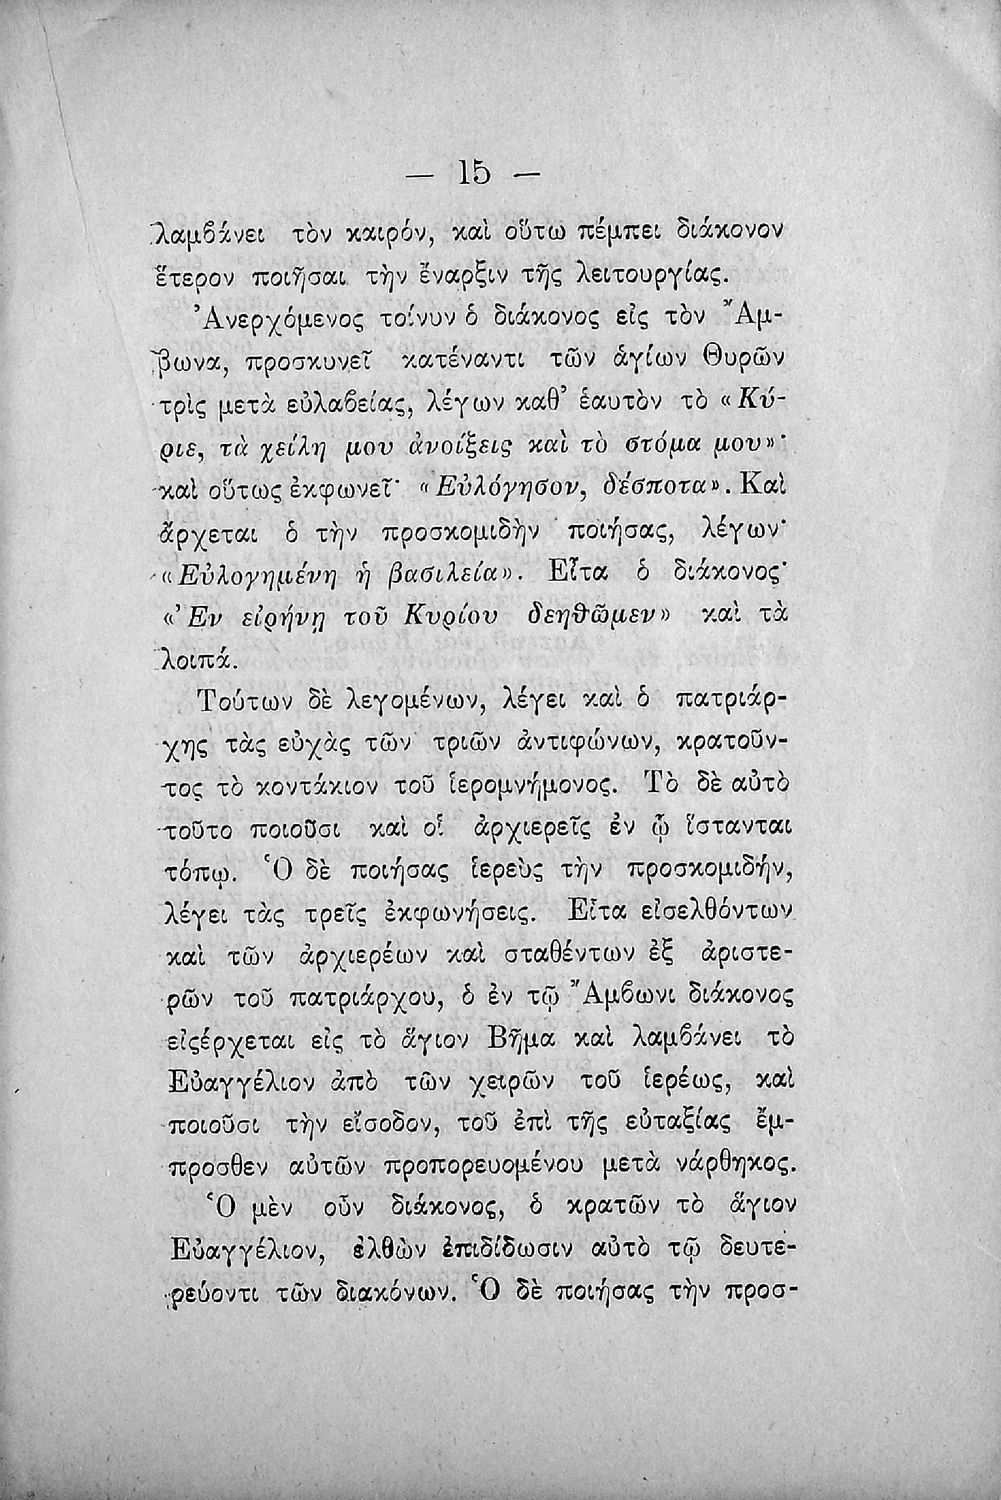 — 15 —
λαμβάνει τὸν καιρόν, καὶ οὕτω πέμπει διάκονον
ἕτερον ποιῆσαι τὴν ἔναρξιν τῆς λειτουργίας.
Ἀνερχόμενος τοίνυν ὁ διάκονος εἰς τὸν Ἄμ-
βωνα, προσκυνεῖ κατέναντι τῶν ἁγίων Θυρῶν
τρὶς μετὰ εὐλαβείας, λέγων καθ’ ἑαυτὸν τὸ «Κύ-
ριε, τὰ χείλη μου ἀνοίξεις καὶ τὸ στόμα μου»·
καὶ οὕτως ἐκφωνεῖ· «Εὐλόγησον, δέσποτα». Καὶ
ἄρχεται ὁ τὴν προσκομιδὴν ποιήσας, λέγων·
«Εὐλογημένη ἡ βασιλεία». Εἶτα ὁ διάκονος·
«Ἐν εἰρήνῃ τοῦ Κυρίου δεηθῶμεν» καὶ τὰ
λοιπά.
Τούτων δὲ λεγομένων, λέγει καὶ ὁ πατριάρ-
χης τὰς εὐχὰς τῶν τριῶν ἀντιφώνων, κρατοῦν-
τος τὸ κοντάκιον τοῦ ἱερομνήμονος. Τὸ δὲ αὐτὸ
τοῦτο ποιοῦσι καὶ οἱ ἀρχιερεῖς ἐν ᾧ ἵστανται
τόπῳ. Ὁ δὲ ποιήσας ἱερεὺς τὴν προσκομιδήν,
λέγει τὰς τρεῖς ἐκφωνήσεις. Εἶτα εἰσελθόντων
καὶ τῶν ἀρχιερέων καὶ σταθέντων ἐξ ἀριστε-
ρῶν τοῦ πατριάρχου, ὁ ἐν τῷ Ἄμβωνι διάκονος
εἰςέρχεται εἰς τὸ ἅγιον Βῆμα καὶ λαμβάνει τὸ
Εὐαγγέλιον ἀπὸ τῶν χειρῶν τοῦ ἱερέως, καὶ
ποιοῦσι τὴν εἴσοδον, τοῦ ἐπὶ τῆς εὐταξίας ἔμ-
προσθεν αὐτῶν προπορευομένου μετὰ νάρθηκος.
Ὁ μὲν οὖν διάκονος, ὁ κρατῶν τὸ ἅγιον
Εὐαγγέλιον, ἐλθὼν ἐπιδίδωσιν αὐτὸ τῷ δευτε-
ρεύοντι τῶν διακόνων. Ὁ δὲ ποιήσας τὴν προσ-